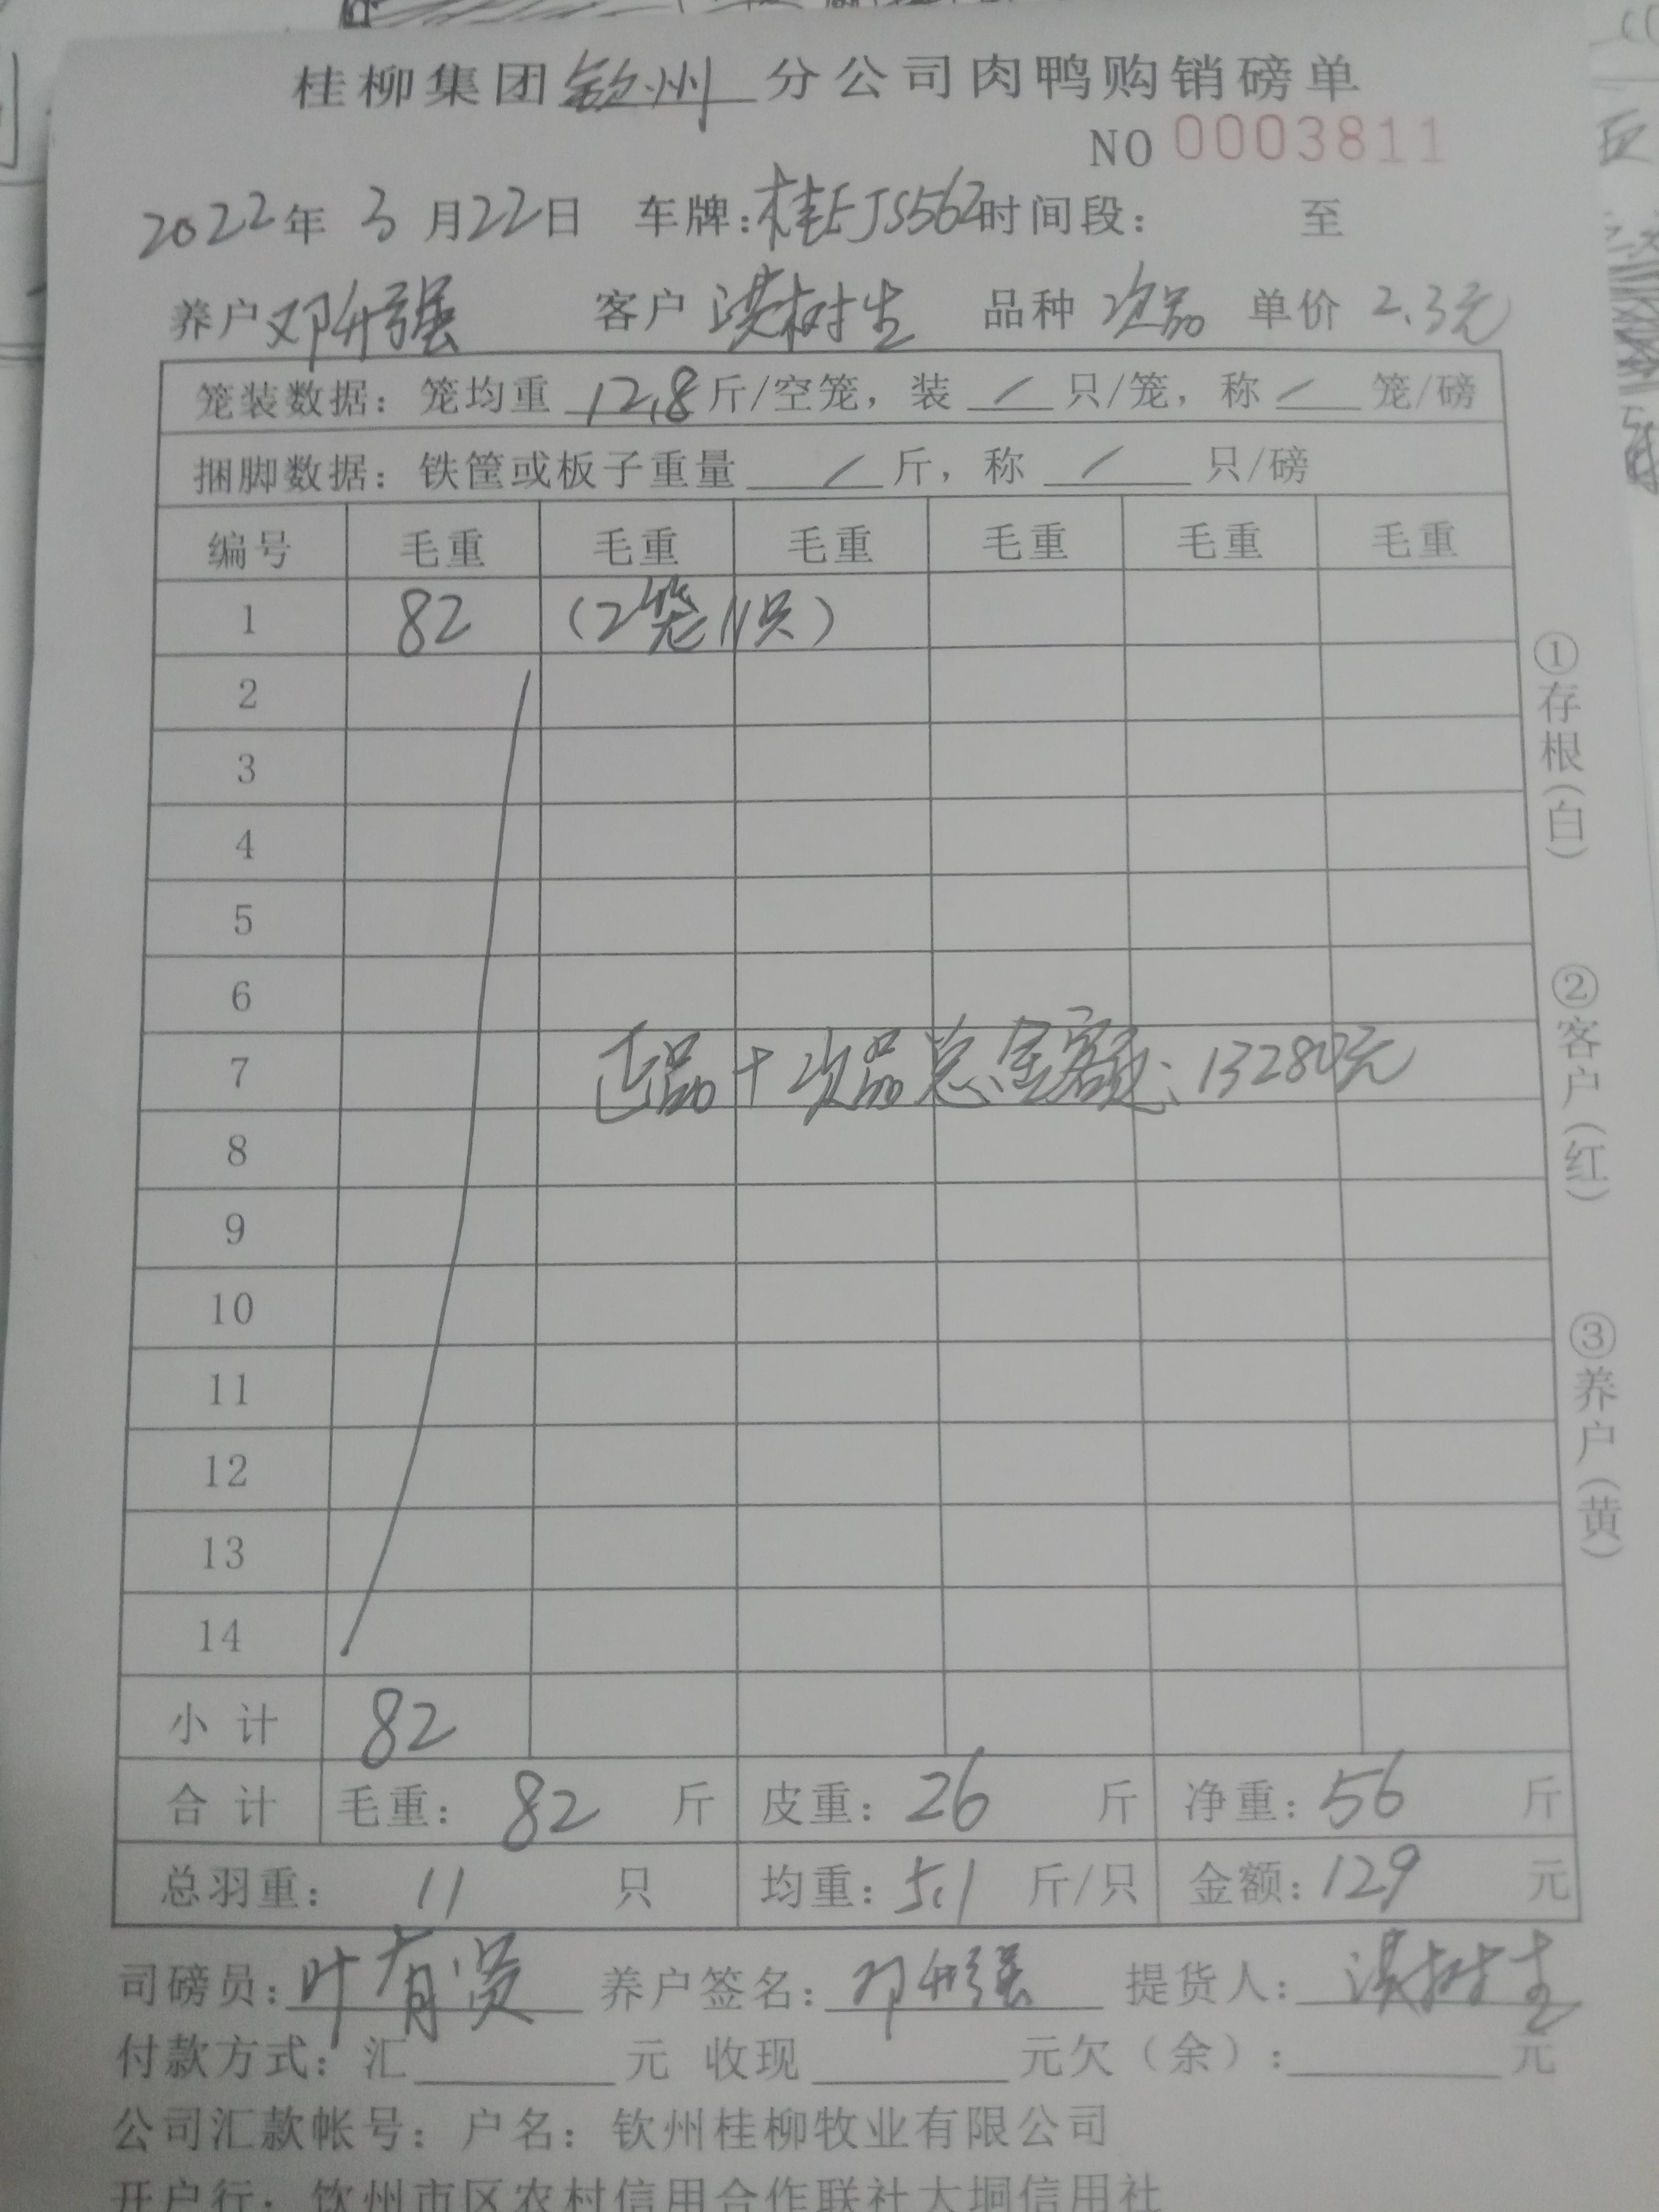 桂柳集团钦州分公司肉鸭购销磅单
NO 0003811
2022年3月22日 车牌:桂EJS562时间段: 至
养户邓升强 客户洪树生 品种次品 单价2.3元
笼装数据:笼均重12.8斤/空笼,装/只/笼,称/笼/磅
捆脚数据:铁筐或板子重量/斤,称/只/磅
编号 毛重 毛重 毛重 毛重 毛重 毛重
1 82 (2笼11只)
2
3
4
5
6
7 正品+次品总金额:13280元
8
9
10
11
12
13
14
小计 82
合计 毛重:82斤 皮重:26斤 净重:56斤
总羽重:11只 均重:5.1斤/只 金额:129元
司磅员:叶有 养户签名:邓升强 提货人:洪树生
付款方式:汇 元 收现 元欠(余): 元
公司汇款帐号:户名:钦州桂柳牧业有限公司
开户行:钦州市区农村信用合作联社大垌信用社
①存根(白)
②客户(红)
③养户(黄)